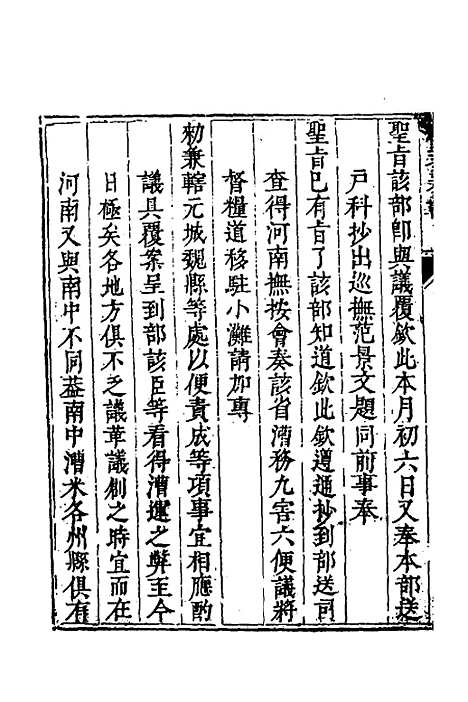 聖旨該部卽與議覆欽此本月初六日又奉本部送
戶科抄出巡撫范景文題同前事奉
聖旨已有旨了該部知道欽此欽遵通抄到部送司
查得河南撫按會奏該省漕務九害六便議將
督糧道移駐小灘請加專
勑兼轄元城魏縣等處以便責成等項事宜相應酌
議具覆案呈到部該臣等看得漕運之弊至今
日極矣各地方俱不乏議革議創之時宜而在
河南又與南中不同葢南中漕米各州縣俱有